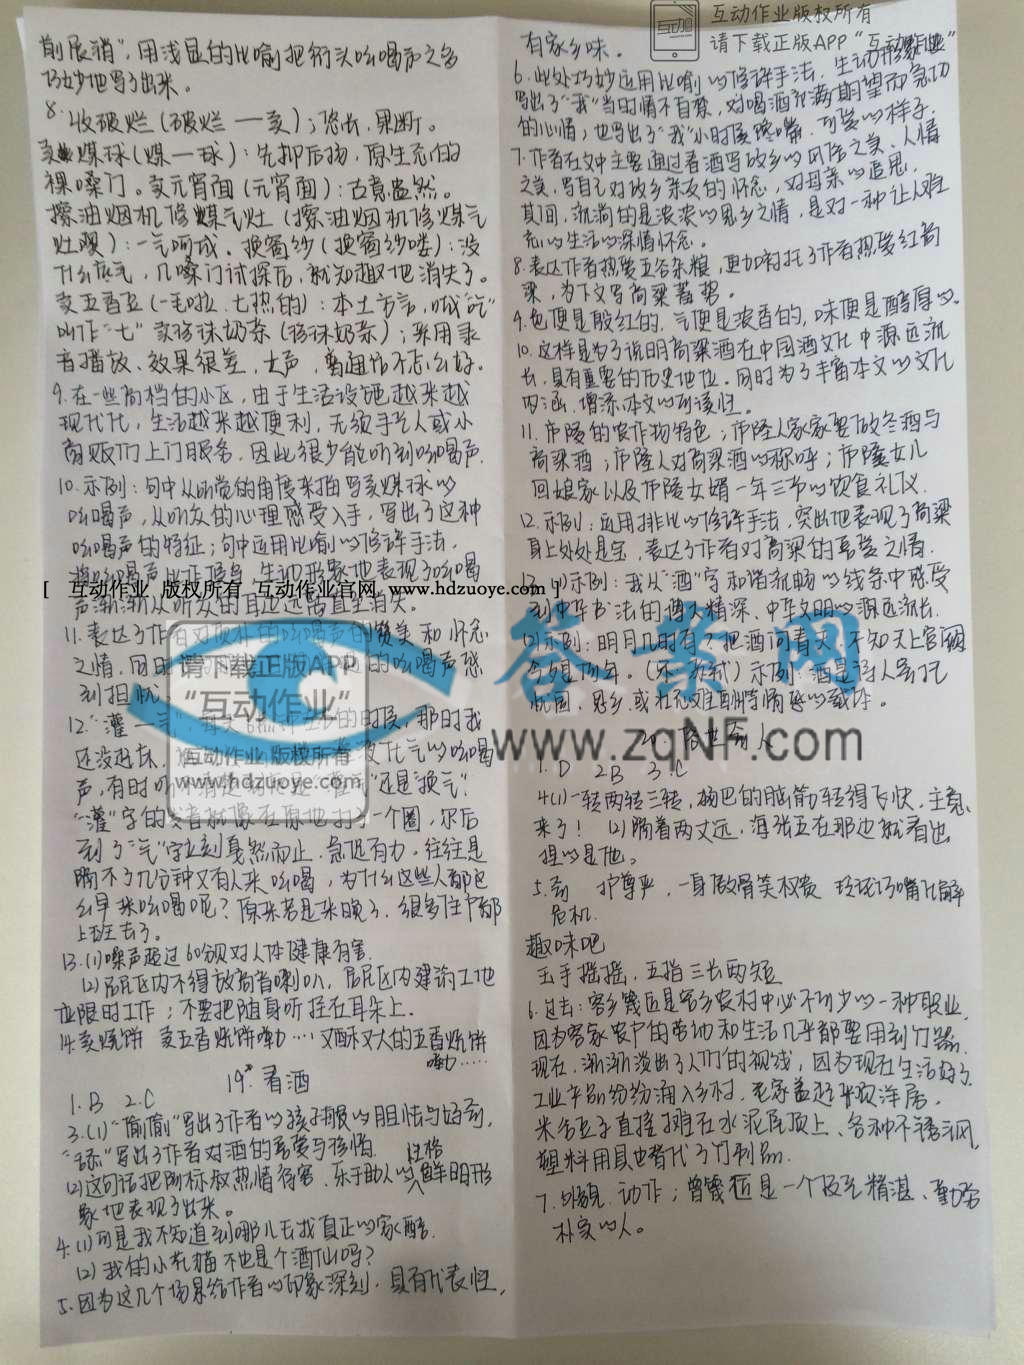 互动作业版权所有
请下载正版APP“互动作业”
前长消”，用浅显的比喻把剃头吆喝声之多
巧妙地写了出来。
8. 收破烂（破烂—卖）；悠长，果断。
卖煤球（煤—球）：先抑后扬，原生态的
裸嗓门。卖元宵面（元宵面）：古意盎然。
擦油烟机修煤气灶（擦油烟机修煤气
灶嘞）：一气呵成。换窗纱（换窗纱喽）：没
什么底气，几嗓门试探后，就知趣地消失了。
叫作“七”卖珍珠奶茶（珍珠奶茶）；采用录
音播放、效果很差，大声，
9.在一些高档的小区，由于生活设施越来越
现代化，生活越来越便利，无须手艺人或小
商贩们上门服务，因此很少能听到吆喝声.
10. 示例：句中从听觉的角度来描写卖煤球的
吆喝声，从听众的心理感受入手，写出了这种
吆喝声的特征；句中运用比喻的修辞手法，
[ 互动作业 版权所有 互动作业官网 www.hdzuoye.com ]
声渐渐从听众的耳边远去直至消失。
11.表达了作者对
之情，
到担忧
请下载正版APP
“互动作业”
互动作业 版权所有
www.hdzuoye.com
的时候，那时我
还没起床，
声，有时
还是换气”
“灌”字的
一个圈，尔后
到了“气”字立刻戛然而止，急促有力，往往是
隔不了几分钟又有人来吆喝，为什么这些人都这
么早来吆喝呢？原来若是来晚了，很多住户都
上班去了。
13.(1)噪声超过60分贝对人体健康有害.
(2)居民区内不得放高音喇叭，居民区内建筑工地
应限时工作；不要把随身听挂在耳朵上.
14.卖烧饼 卖五香烧饼嘞……又酥又大的五香烧饼
嘞……
19* 看酒
1.B 2.C
3.(1)“偷偷”写出了作者的孩子般的胆怯与好奇，
“舔”写出了作者对酒的喜爱与
(2)这句话把阿标叔热情待客、乐于助人的性格鲜明形
象地表现了出来。
4.(1)可是我不知道到哪儿去找真正的家醅.
(2)我的小花猫不也是个酒仙吗？
5.因为这几个场景给作者的印象深刻，具有代表性，
有家乡味。
6.此处巧妙运用比喻的修辞手法，生动形象地
写出了“我”当时情不自禁，对喝酒充满期望而急切
的心情；也写出了“我”小时候馋嘴、可爱的样子.
7.作者在文中主要通过看酒写故乡的风俗之美、人情
之美，写自己对故乡亲友的怀念，对母亲的追思，
其间，流淌的是浓浓的思乡之情，是对一种让人难
忘的生活的深情怀念。
8.表达作者热爱五谷杂粮，更加衬托了作者热爱红高
粱，为下文写高粱蓄势。
9.色便是殷红的，气便是浓香的，味便是醇厚的。
10.这样是为了说明高粱酒在中国酒文化中源远流
长，具有重要的历史地位。同时为了丰富本文的文化
内涵，增添本文的可读性。
11.庐陵的农作物特色；庐陵人家家要做冬酒与
高粱酒；庐陵人对高粱酒的称呼；庐陵女儿
回娘家以及庐陵女婿一年三节的饮食礼仪.
12.示例：运用排比的修辞手法，突出地表现了高粱
身上处处是宝，表达了作者对高粱的喜爱之情.
13.(1)示例：我从“酒”字和谐流畅的线条中感受
到中华书法的博大精深、中华文明的源远流长.
(2)示例：明月几时有？把酒问青天。不知天上宫阙
今夕是何年。 示例：酒是诗人
忧国、思乡或
答案网
www.zqNF.com
1.D 2B 3.C
4(1)一转两转三转，杨巴的脑筋转得飞快，主意
来了！ (2)隔着两丈远，海张五在那边就看出
捏的是他。
5. 护尊严，一身傲骨笑权贵
危机.
趣味吧
玉手摇摇，五指三长两短
6.过去：客乡篾匠是客乡农村中必不可少的一种职业，
因为客家农户的劳动和生活几乎都要用到竹器.
现在，渐渐淡出了人们的视线，因为现在生活好了，
工业产品纷纷涌入乡村，
米谷豆子直接摊在水泥屋顶上、各种不锈钢，
塑料用具也替代了竹制品.
7.外貌.动作；曾篾匠是一个技艺精湛、勤劳
朴实的人。